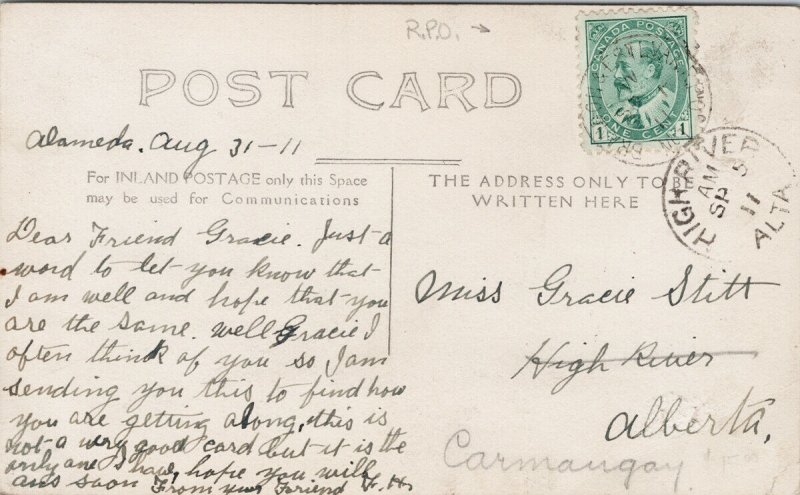 R.P.O. →
CANADA POSTAGE
1 ONE CENT 1
POST CARD
Alameda. Aug 31-11
HIGH RIVER
AM
SP 5
11
ALTA
For INLAND POSTAGE only this Space
may be used for Communications
THE ADDRESS ONLY TO BE
WRITTEN HERE
Dear Friend Gracie. Just a
word to let you know that
I am well and hope that you
are the same. Well Gracie I
often think of you so I am
sending you this to find how
you are getting along, this is
not a very good card but it is the
only one I have, hope you will
ans soon From your Friend F. H.
Miss Gracie Stitt
High River
Alberta,
Carmangay